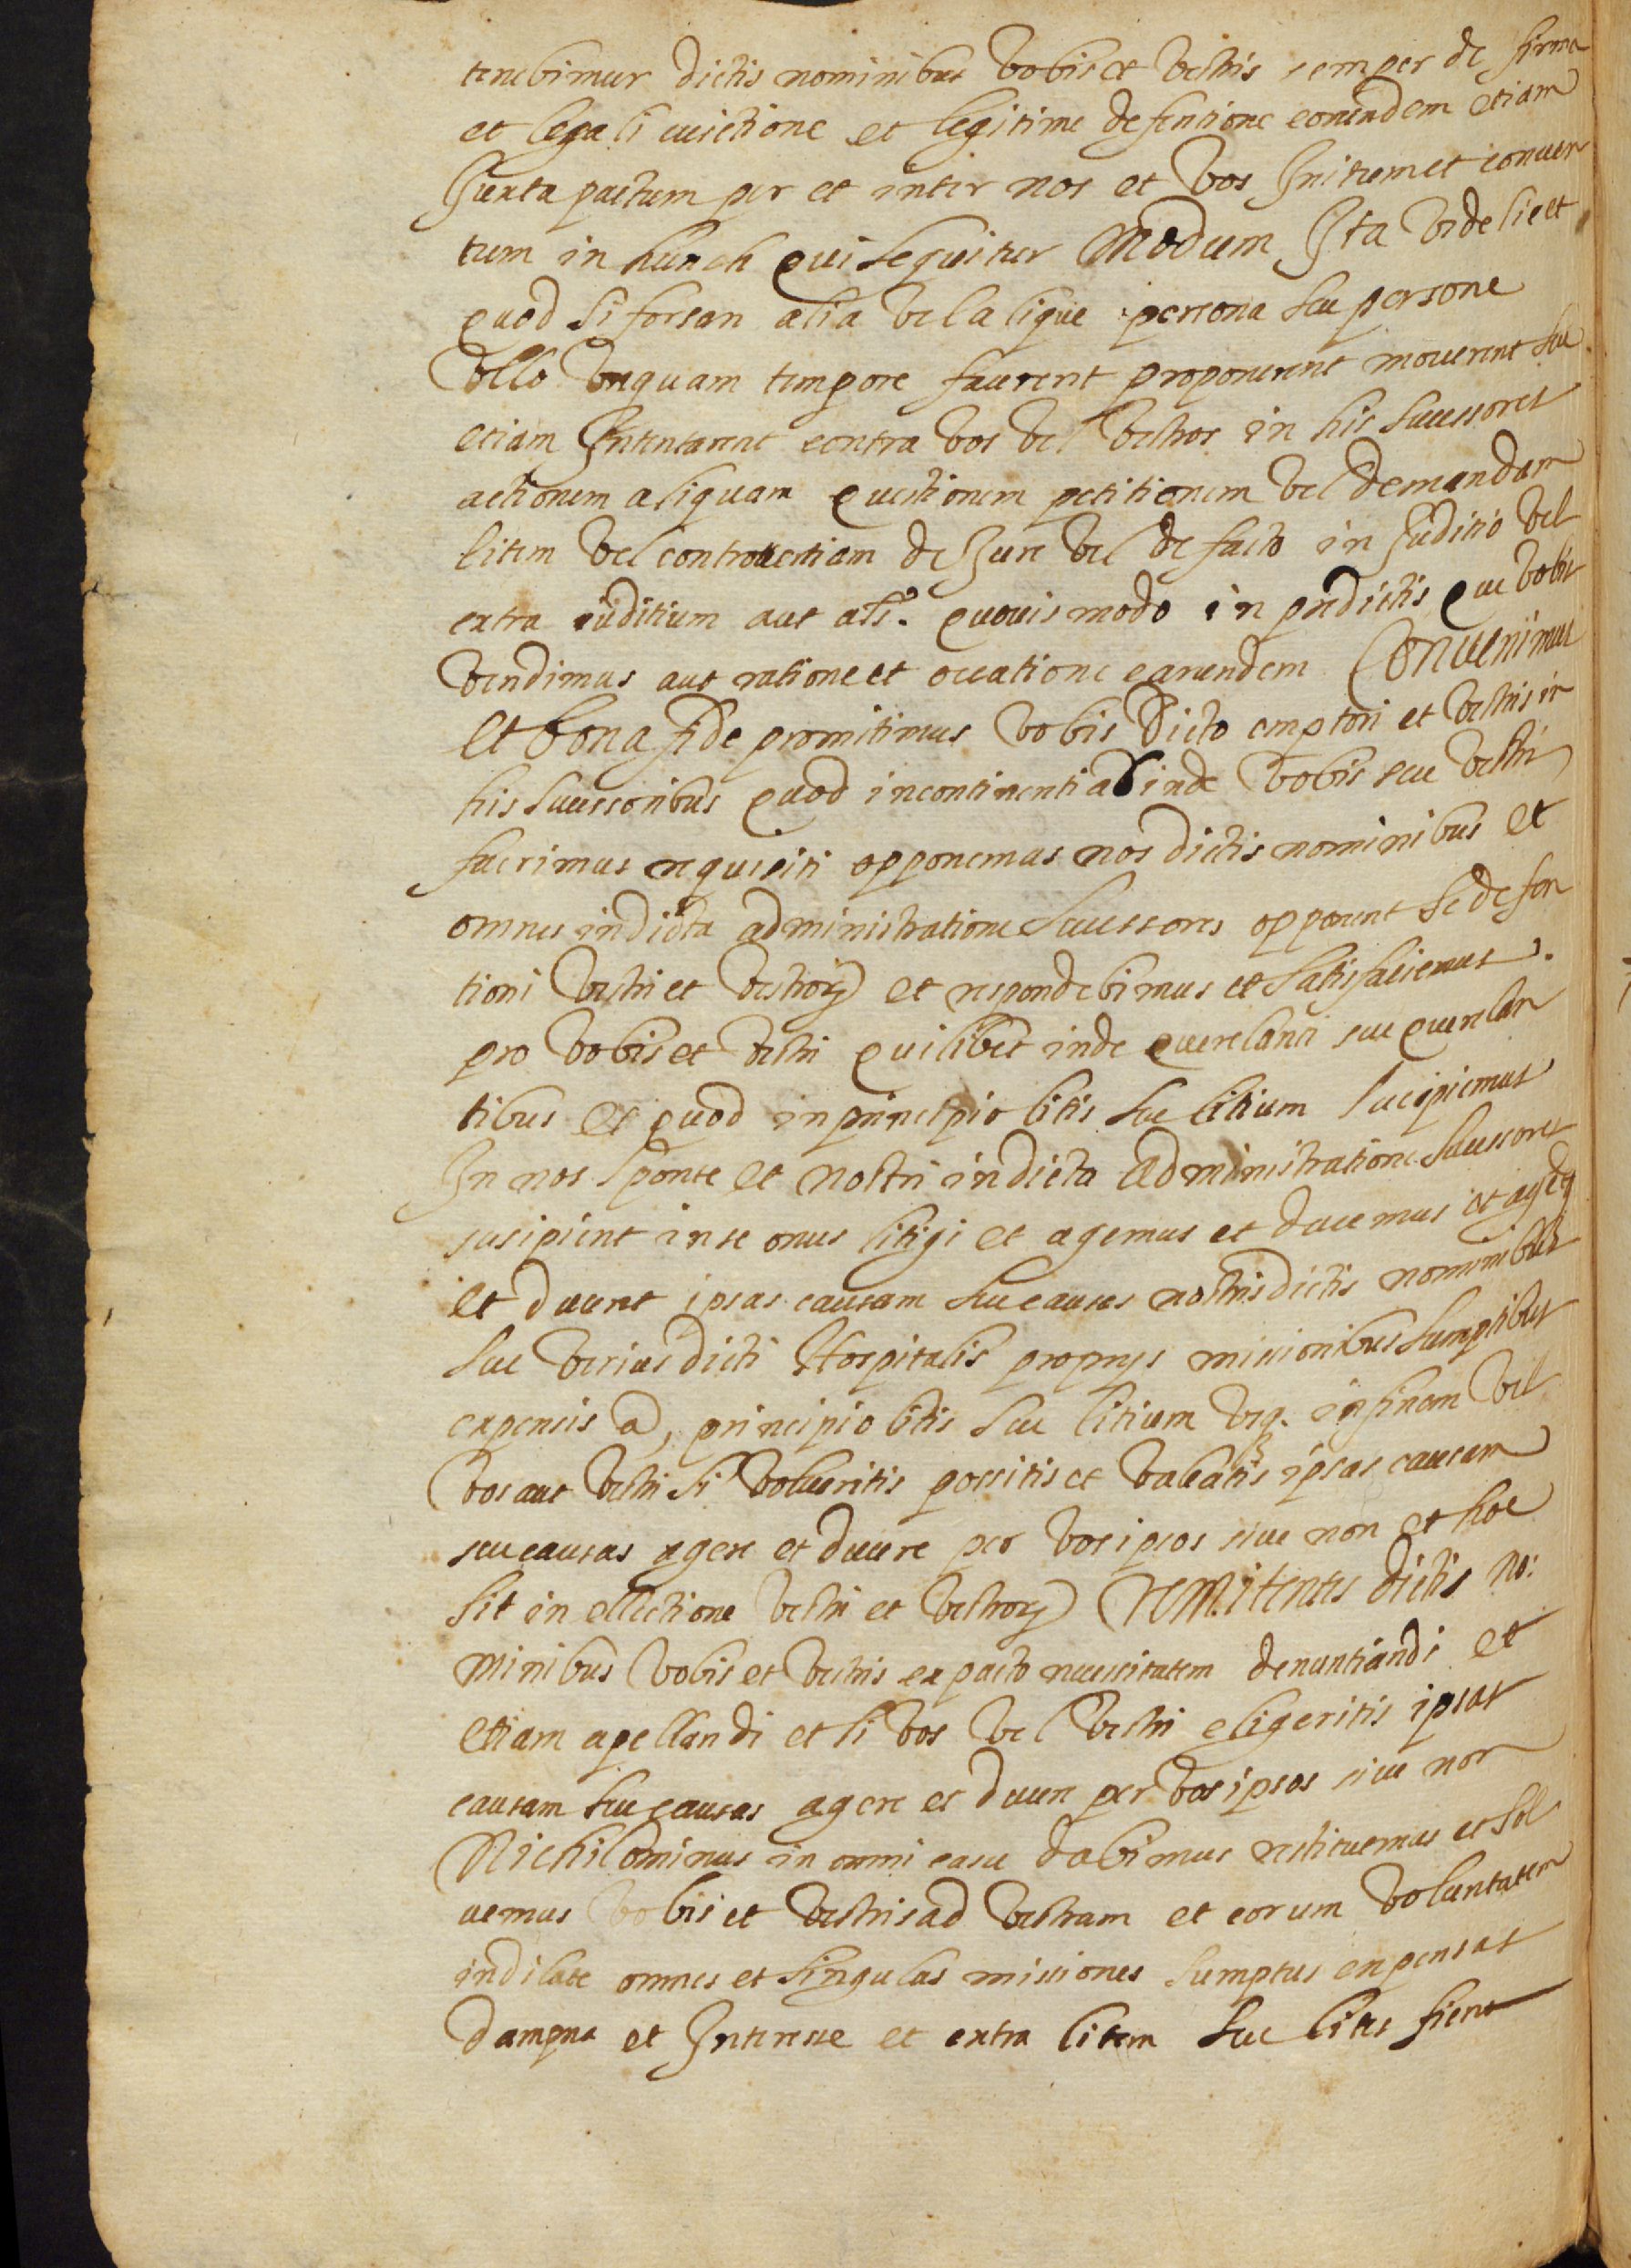 tenebimur dictis nominibus vobis et vestris semper de firma
et legali euictione et legitime defentione eorundem etiam
Juxta pactum per et inter nos et vos Initum et conuen
tum in hunch qui sequitur Modum Ita videlicet
quod si forsan alia vel alique persona seu persone
vllo vnquam tempore faurent proponerent mouerent seu
etiam Intentarent contra vos vel vestros in his successores
actionem aliquam questionem petitionem vel demandam
litem vel controuertiam de Jure vel de facto in Juditio vel
extra iuditium aut als. quouis modo in predictis que vobis
vendimus aut ratione et occatione earundem Conuenimus
et bona fide promitimus vobis dicto emptori et vestris in
his successoribus quod incontinenti ab inde vobis seu vestri
fuerimus requisiti opponemas nos dictis nominibus et
omnes in dicta administratione successores opponent se defen
tioni vestri et vestrorum et respondebimus et satisfaciemus.
pro vobis et vestri quilibet inde querelanti seu querelan
tibus et quod in principio litis seu litium sucipiemus
In nos sponte et nostri in dicta administratione successores
suscipient in se onus litigi et agemus et ducemus et agent
et ducent ipsas causam seu causas nostris dictis nominibus
seu verius dicti Hospitalis proprijs missionibus sumptibus
expensis a, principio litis seu litium vsq. in finem vel
vos aut vestri si volueritis possitis et valeatis ipsas causam
seu causas agere et ducere per vos ipsos siue non et hoc
sit in ellectione vestri et vestrorum remitentes dictis no:
minibus vobis et vestris ex pacto necessitatem denuntiandi et
etiam apellandi et si vos vel vestri eligeritis ipsas
causam seu causas agere et ducere per vos ipsos siue non
Nichilominus in omni casu dabimus restituemus et sol
uemus vobis et vestris ad vestram et eorum voluntatem
indilate omnes et singulas missiones sumptus expensas
dampna et Interesse et extra litem seu lites fient